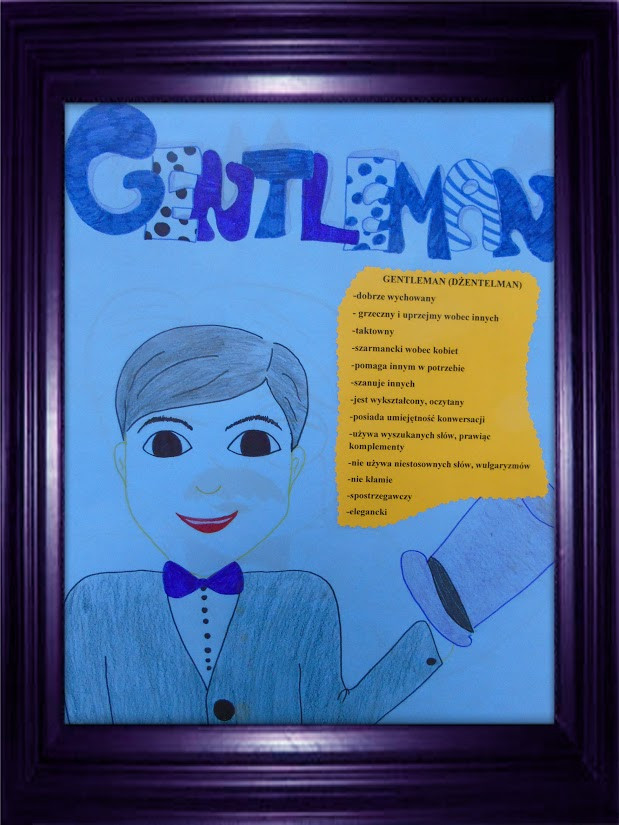 GENTLEMAN
GENTLEMAN (DŻENTELMAN)
-dobrze wychowany
- grzeczny i uprzejmy wobec innych
-taktowny
-szarmancki wobec kobiet
-pomaga innym w potrzebie
-szanuje innych
-jest wykształcony, oczytany
-posiada umiejętność konwersacji
-używa wyszukanych słów, prawiąc
komplementy
-nie używa niestosownych słów, wulgaryzmów
-nie kłamie
-spostrzegawczy
-elegancki